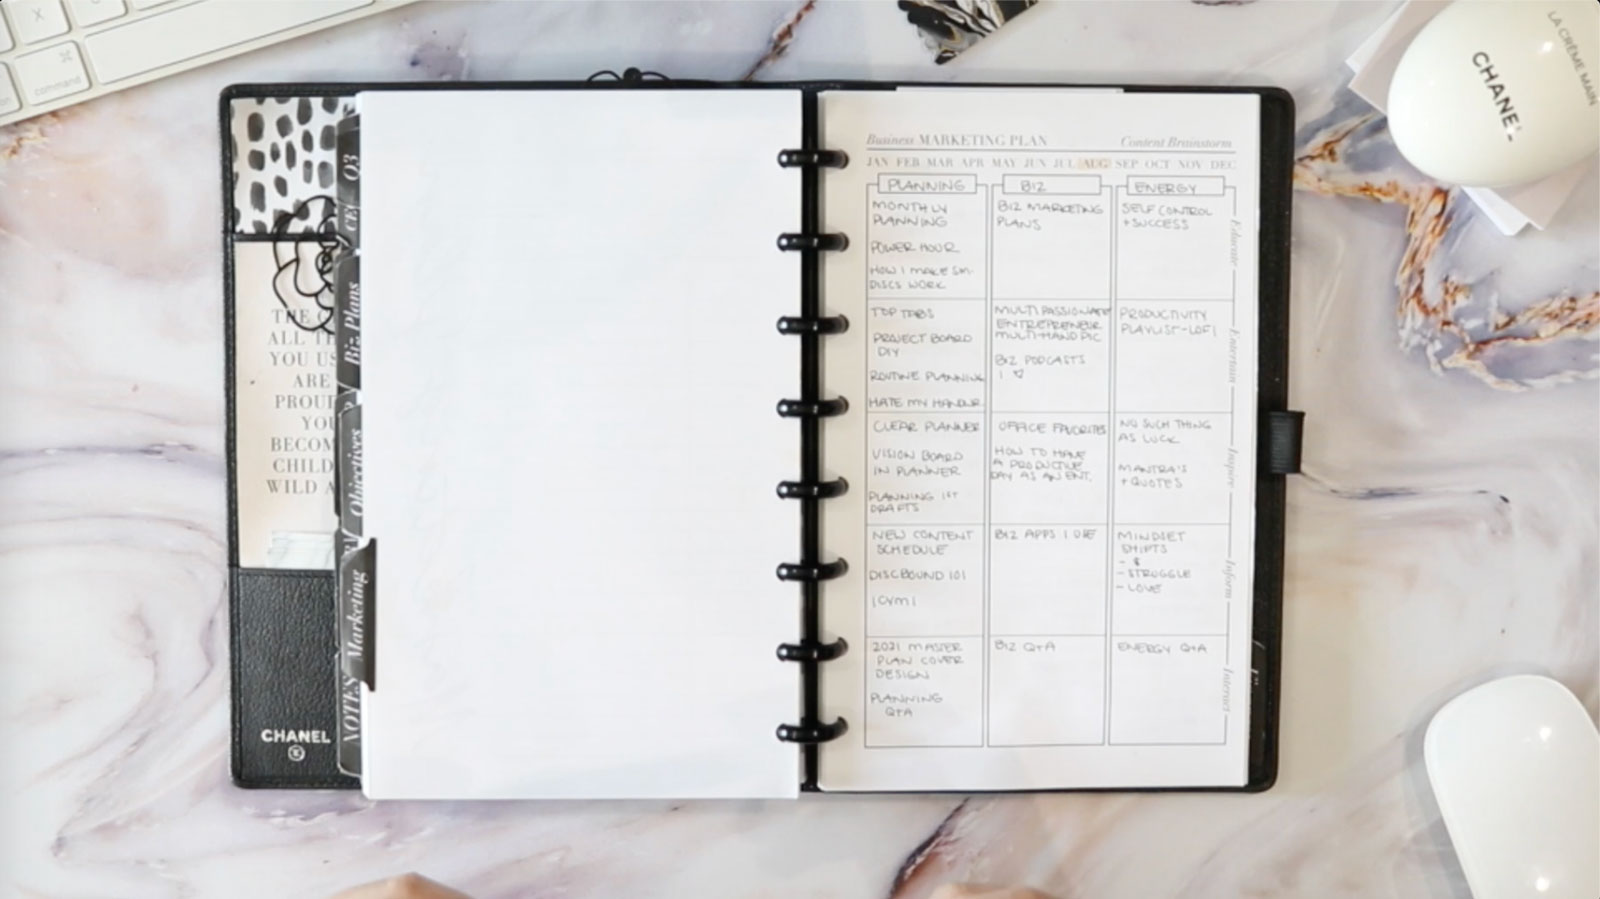 X
⌘
command
LA CRÈME MAIN
CHANEL
Q3
Biz Plans
Objectives
Marketing
NOTES
ALL
YOU
ARE
PROUD
YOU
CHILD
WILD
CHANEL
Business MARKETING PLAN Content Brainstorm
JAN FEB MAR APR MAY JUN JUL AUG SEP OCT NOV DEC
PLANNING
MONTHLY
PLANNING
POWER HOUR
HOW I MAKE SM.
DISCS WORK
TOP TABS
PROJECT BOARD
DIY
ROUTINE PLANNING
HATE MY HANDWR.
CLEAR PLANNER
VISION BOARD
IN PLANNER
PLANNING 1ST
DRAFTS
NEW CONTENT
SCHEDULE
DISCBOUND 101
ICYMI
2021 MASTER
PLAN COVER
DESIGN
PLANNING
Q+A
BIZ
BIZ MARKETING
PLANS
MULTI PASSIONATE
ENTREPRENEUR
MULTI-HAND PIC
BIZ PODCASTS
I ♡
OFFICE FAVORITES
HOW TO HAVE
A PRODUCTIVE
DAY AS AN ENT.
BIZ APPS I USE
BIZ Q+A
ENERGY
SELF CONTROL
+SUCCESS
PRODUCTIVITY
PLAYLIST-LOFI
NO SUCH THING
AS LUCK
MANTRA'S
+QUOTES
MINDSET
SHIFTS
- $
- STRUGGLE
- LOVE
ENERGY Q+A
Educate
Entertain
Inspire
Inform
Interact